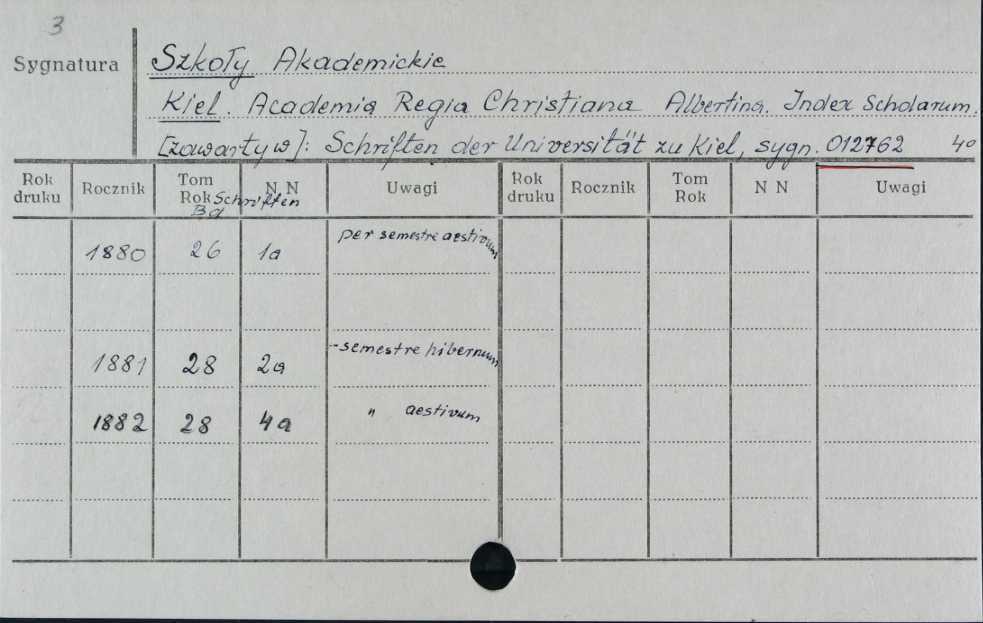 3
Sygnatura Szkoły Akademickie
Kiel. Academia Regia Christiana Albertina. Index Scholarum.
[zawarty w]: Schriften der Universität zu Kiel, sygn. 012762 40
Rok druku Rocznik Tom Rok Schriften Bd N N Uwagi Rok druku Rocznik Tom Rok N N Uwagi
1880 26 1a per semestre aestivum
1881 28 2a - semestre hibernum
1882 28 4a " aestivum